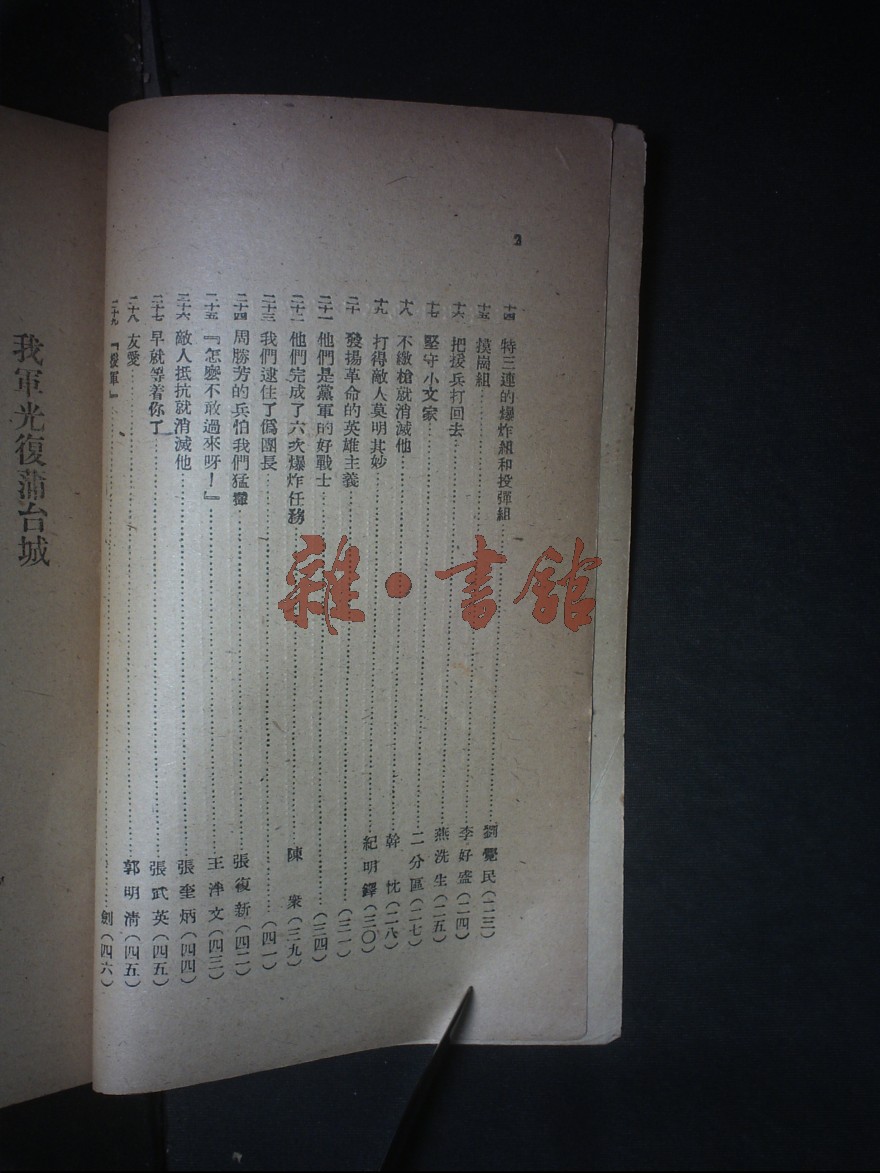 2
十四 特三連的爆炸組和投彈組……劉覺民(二三)
十五 摸崗組……李好盛(二四)
十六 把援兵打回去……燕洗生(二五)
十七 堅守小文家……二分區(二七)
十八 不繳槍就消滅他……幹忱(二八)
十九 打得敵人莫明其妙……紀明鐸(三〇)
二十 發揚革命的英雄主義……(三一)
二十一 他們是黨軍的好戰士……(三四)
二十二 他們完成了六次爆炸任務……陳衆(三九)
二十三 我們逮住了僞團長……(四一)
二十四 周勝芳的兵怕我們猛攆……張復新(四二)
二十五 『怎麼不敢過來呀!』……王泮文(四三)
二十六 敵人抵抗就消滅他……張奎炳(四四)
二十七 早就等着你了……張武英(四五)
二十八 友愛……郭明清(四五)
二十九 『援軍』……劍(四六)
我軍光復蒲台城
雜·書館